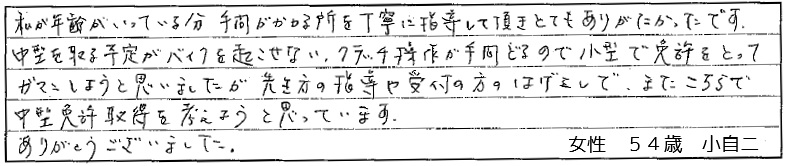 私が年齢がいっている分 手間がかかる所を丁寧に指導して頂きとてもありがたかったです.
中型を取る予定がバイクを起こせない、クラッチ操作が手間どるので小型で免許をとって
ガマンしようと思いましたが 先生方の指導や受付の方のはげましで、またこちらで
中型免許取得を考えようと思っています.
ありがとうございました.
女性 54歳 小自二